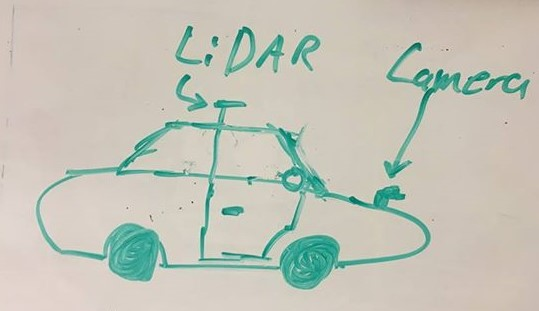 LiDAR
Camera